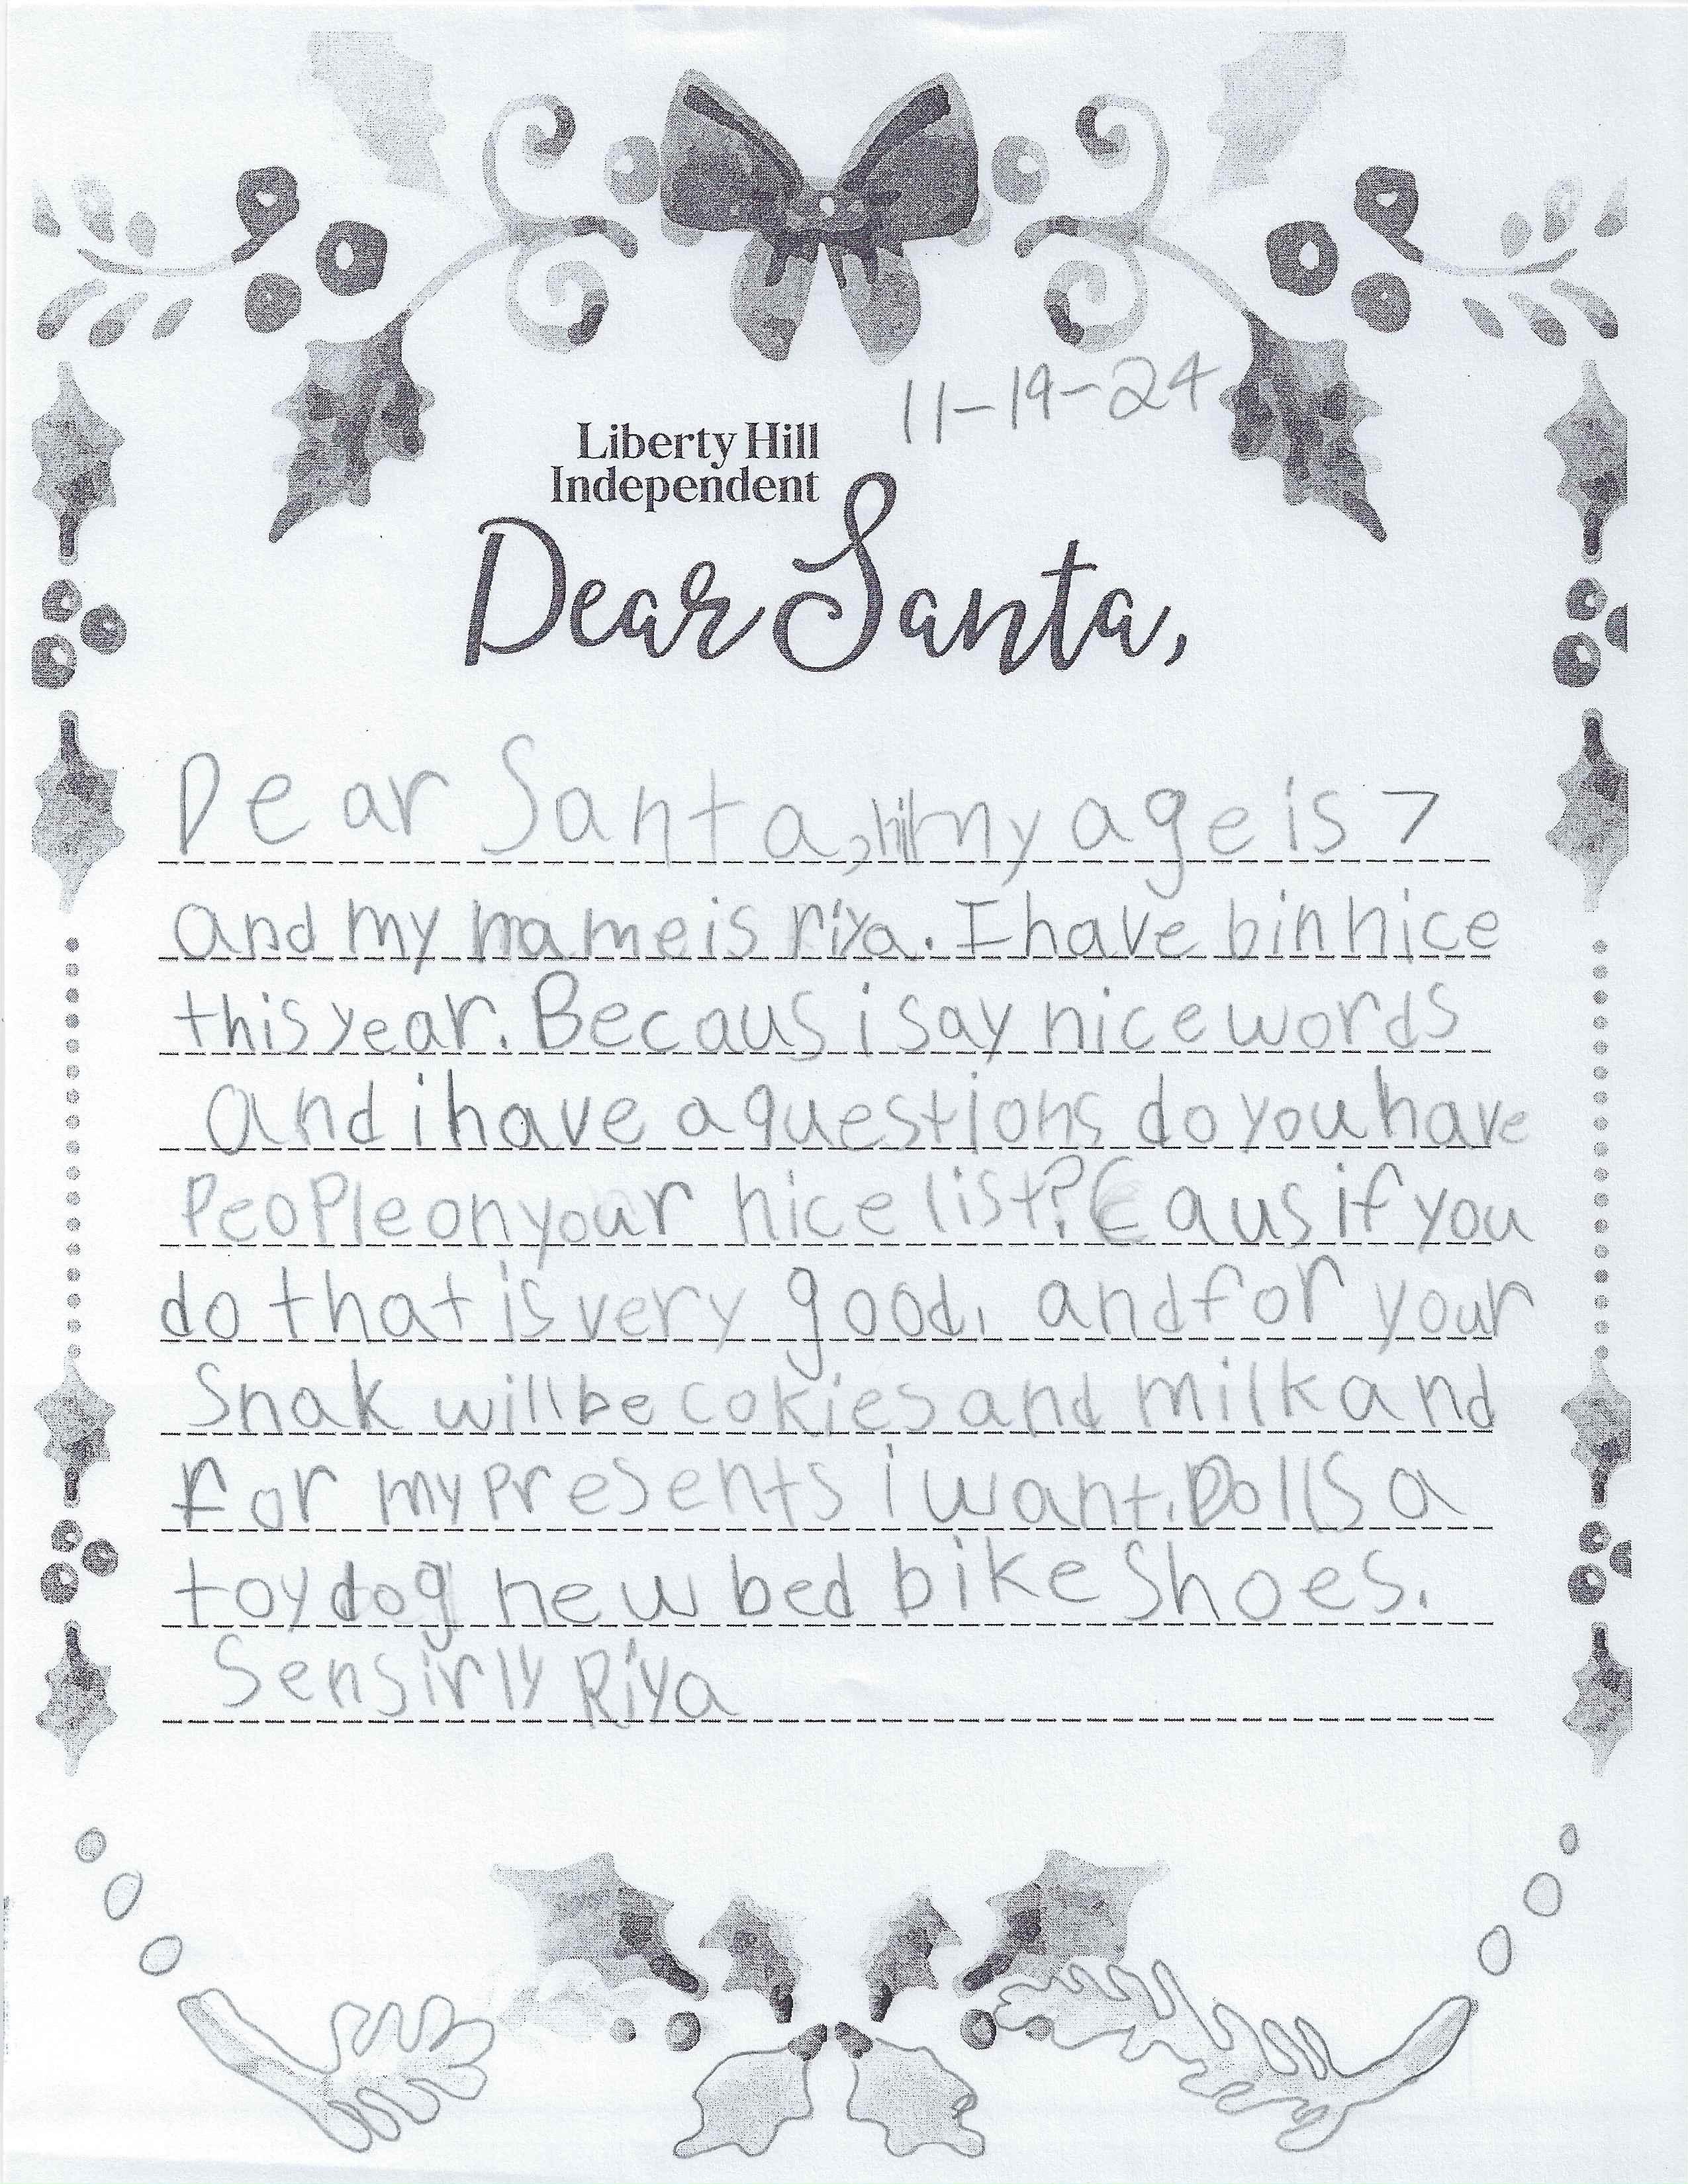 11-19-24
Liberty Hill
Independent
Dear Santa,
Dear Santa, hi my age is 7
and my name is riya. I have bin nice
this year. Becaus i say nice words
and i have a questions do you have
People on your nice list? Caus if you
do that is very good. and for your
Snak will be cokies and milk and
For my presents i want. Dolls a
toy dog new bed bike Shoes.
Sensirly Riya